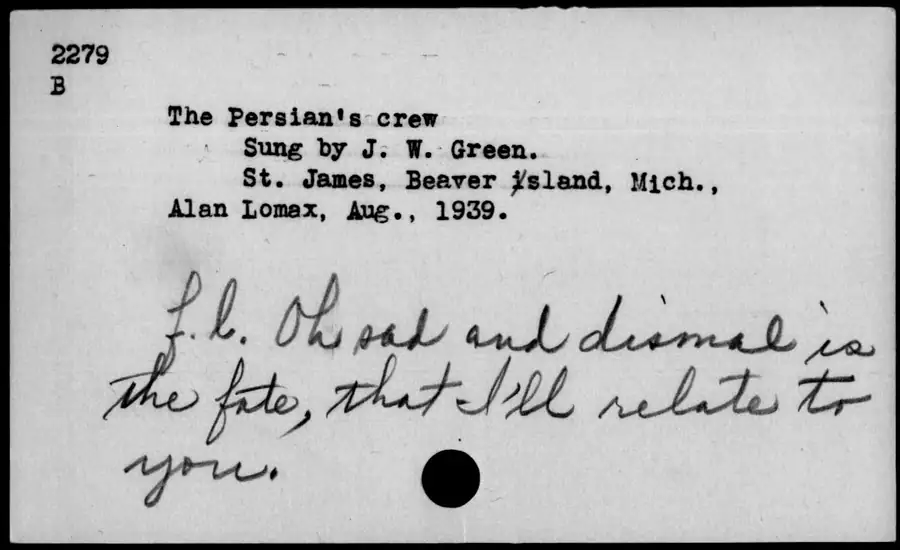 2279
B
The Persian's crew
Sung by J. W. Green.
St. James, Beaver island, Mich.,
Alan Lomax, Aug., 1939.
f.l. Oh sad and dismal is
the fate, that I'll relate to
you.